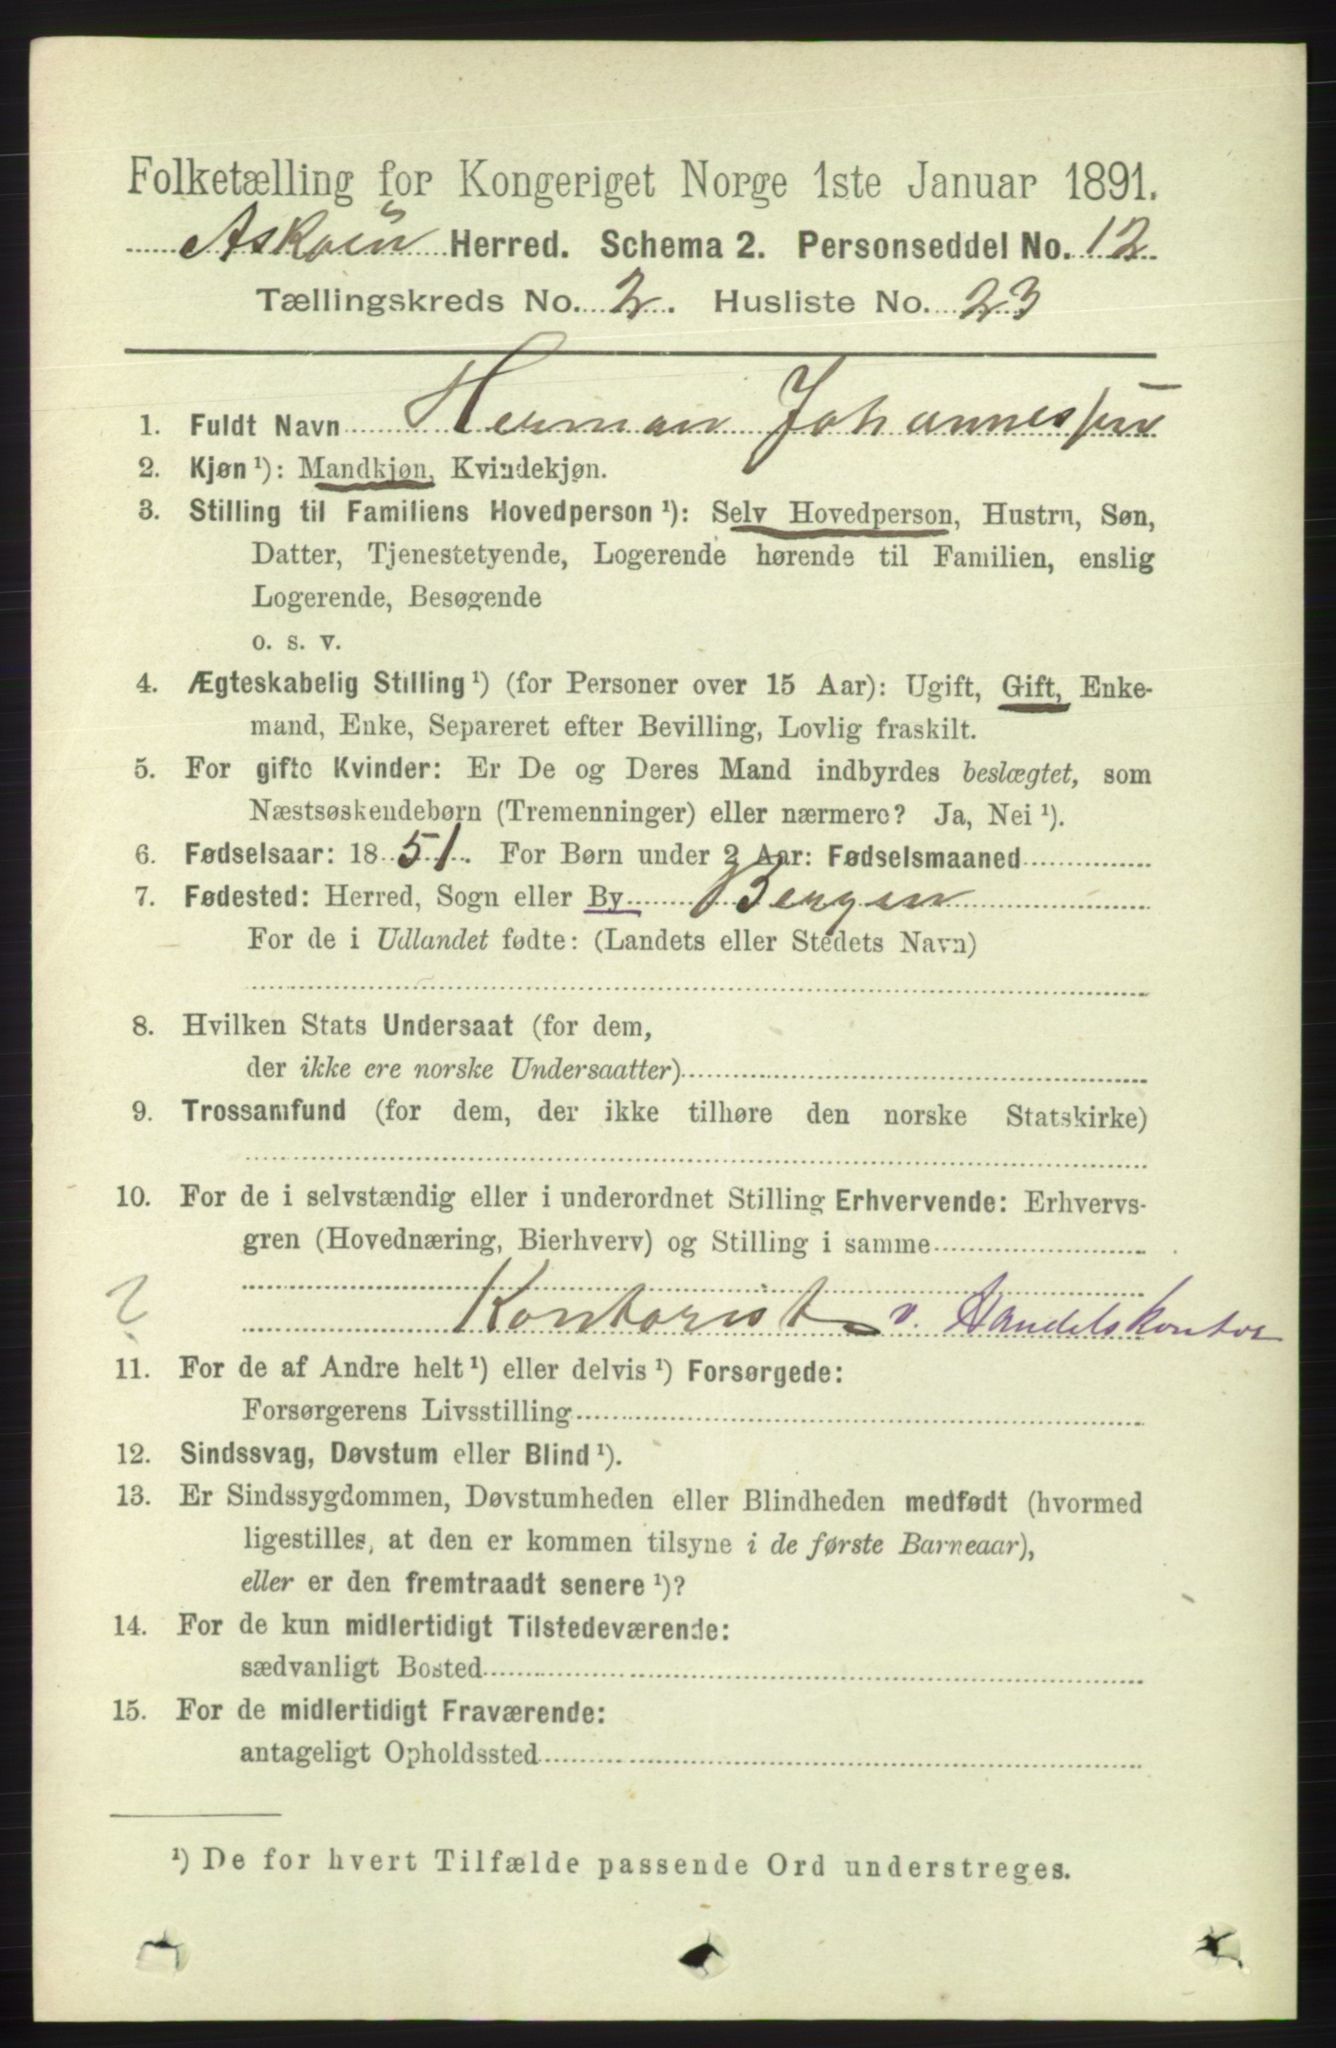 Folketælling for Kongeriget Norge 1ste Januar 1891.
Askøen Herred. Schema 2. Personseddel No. 12
Tællingskreds No. 2. Husliste No. 23
1. Fuldt Navn Herman Johannessen
2. Kjøn ¹): Mandkjøn, Kvindekjøn.
3. Stilling til Familiens Hovedperson ¹): Selv Hovedperson, Hustru, Søn,
Datter, Tjenestetyende, Logerende hørende til Familien, enslig
Logerende, Besøgende
o. s. v.
4. Ægteskabelig Stilling ¹) (for Personer over 15 Aar): Ugift, Gift, Enke-
mand, Enke, Separeret efter Bevilling, Lovlig fraskilt.
5. For gifte Kvinder: Er De og Deres Mand indbyrdes beslægtet, som
Næstsøskendebørn (Tremenninger) eller nærmere? Ja, Nei ¹).
6. Fødselsaar: 1851. For Børn under 2 Aar: Fødselsmaaned
7. Fødested: Herred, Sogn eller By Bergen
For de i Udlandet fødte: (Landets eller Stedets Navn)
8. Hvilken Stats Undersaat (for dem,
der ikke ere norske Undersaatter)
9. Trossamfund (for dem, der ikke tilhøre den norske Statskirke)
10. For de i selvstændig eller i underordnet Stilling Erhvervende: Erhvervs-
gren (Hovednæring, Bierhverv) og Stilling i samme
? Kontorist v. Handelskontor
11. For de af Andre helt ¹) eller delvis ¹) Forsørgede:
Forsørgerens Livsstilling
12. Sindssvag, Døvstum eller Blind ¹).
13. Er Sindssygdommen, Døvstumheden eller Blindheden medfødt (hvormed
ligestilles, at den er kommen tilsyne i de første Barneaar),
eller er den fremtraadt senere ¹)?
14. For de kun midlertidigt Tilstedeværende:
sædvanligt Bosted
15. For de midlertidigt Fraværende:
antageligt Opholdssted
¹) De for hvert Tilfælde passende Ord understreges.